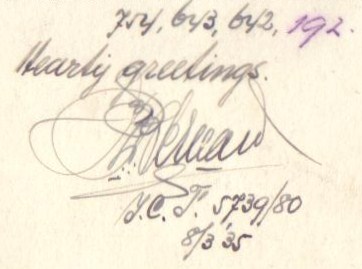 754, 643, 642, 192.
Hearty greetings.
J.C.F. 5739/80
8/3 '35